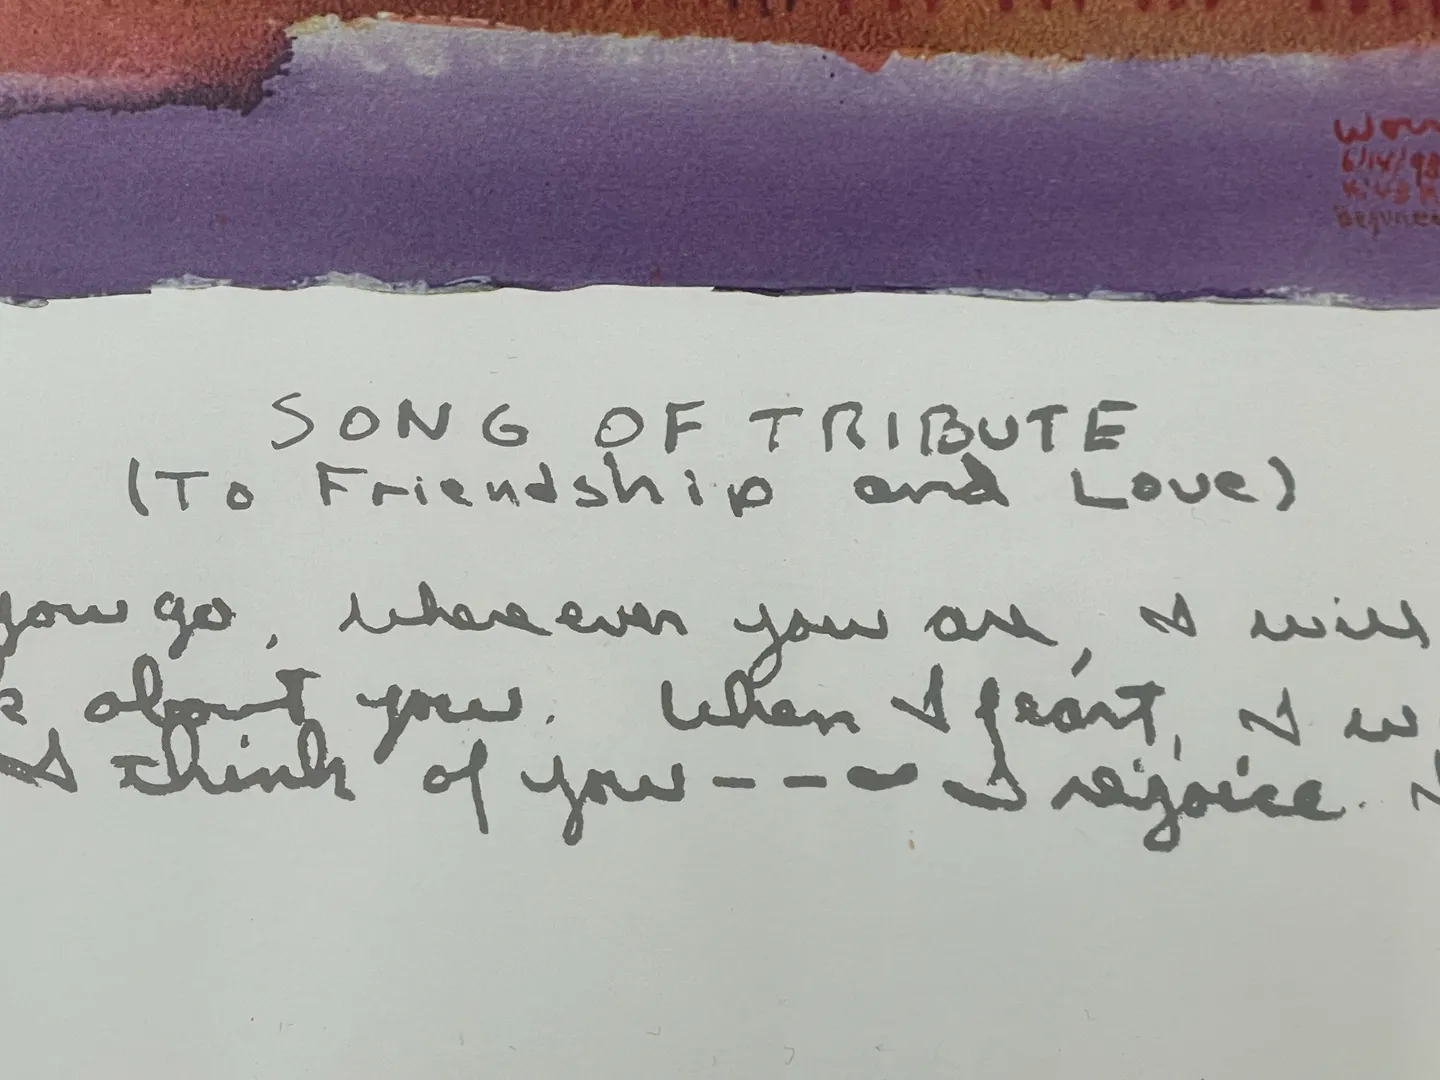 6/14/98
SONG OF TRIBUTE
(To Friendship and Love)
you go, wherever you are, I will
about you. When I feast, I
I think of you --- I rejoice.